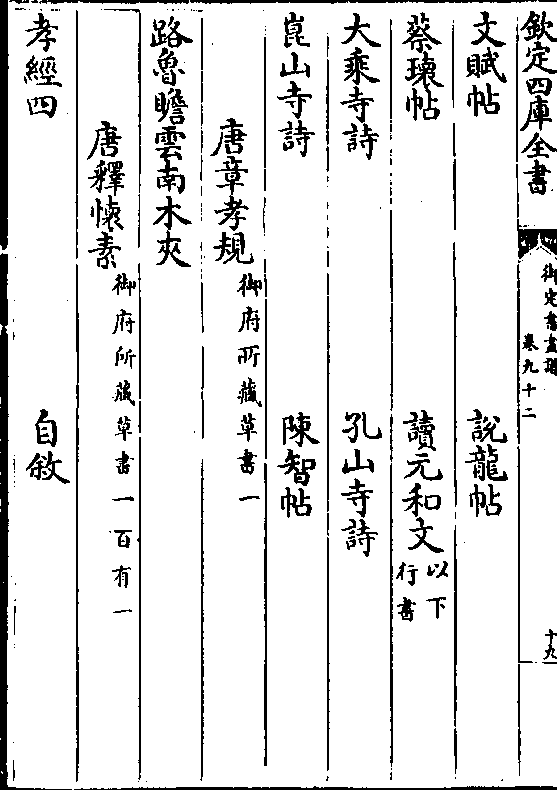 欽定四庫全書
御定書畫譜
卷九十二
十九
文賦帖　說龍帖
蔡瓌帖　讀元和文 以下行書
大乘寺詩　孔山寺詩
崑山寺詩　陳智帖
唐章孝規 御府所藏草書一
路魯瞻雲南木夾
唐釋懷素 御府所藏草書一百有一
孝經四　自敘